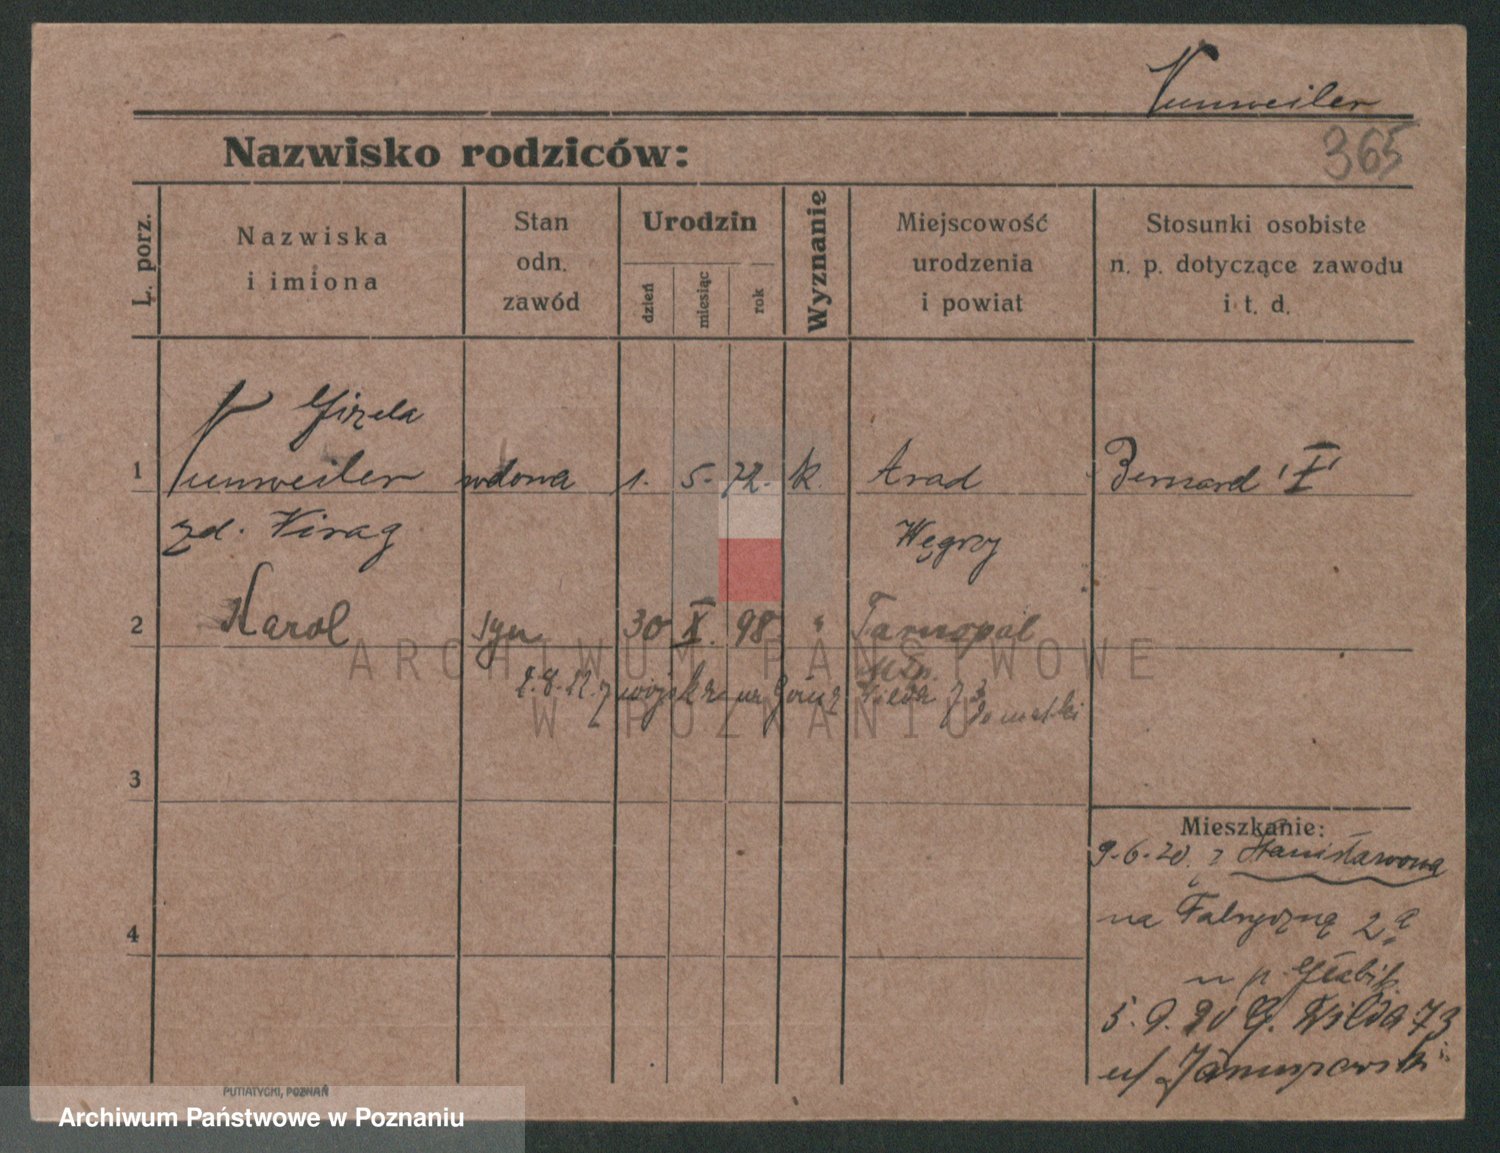 Nunweiler
365
Nazwisko rodziców:
L. porz.
Nazwiska
i imiona
Stan
odn.
zawód
Urodzin
dzień
miesiąc
rok
Wyznanie
Miejscowość
urodzenia
i powiat
Stosunki osobiste
n. p. dotyczące zawodu
i t. d.
Gizela
1 Nunweiler wdowa 1. 5. 72. k. Arad Bernard "I"
zd. Virag Węgry
2 Karol syn 30 X. 98 " Tarnopol
2.8.22. z wojska na Górną
Wilda 73
Domański
3
Mieszkanie:
9.6.20. z Stanisławowa
na Fabryczną 2a
u p. Głabik
4
5.9.20 G. Wilda 73
u/
PUTIATYCKI, POZNAŃ
ARCHIWUM PAŃSTWOWE
W POZNANIU
Archiwum Państwowe w Poznaniu